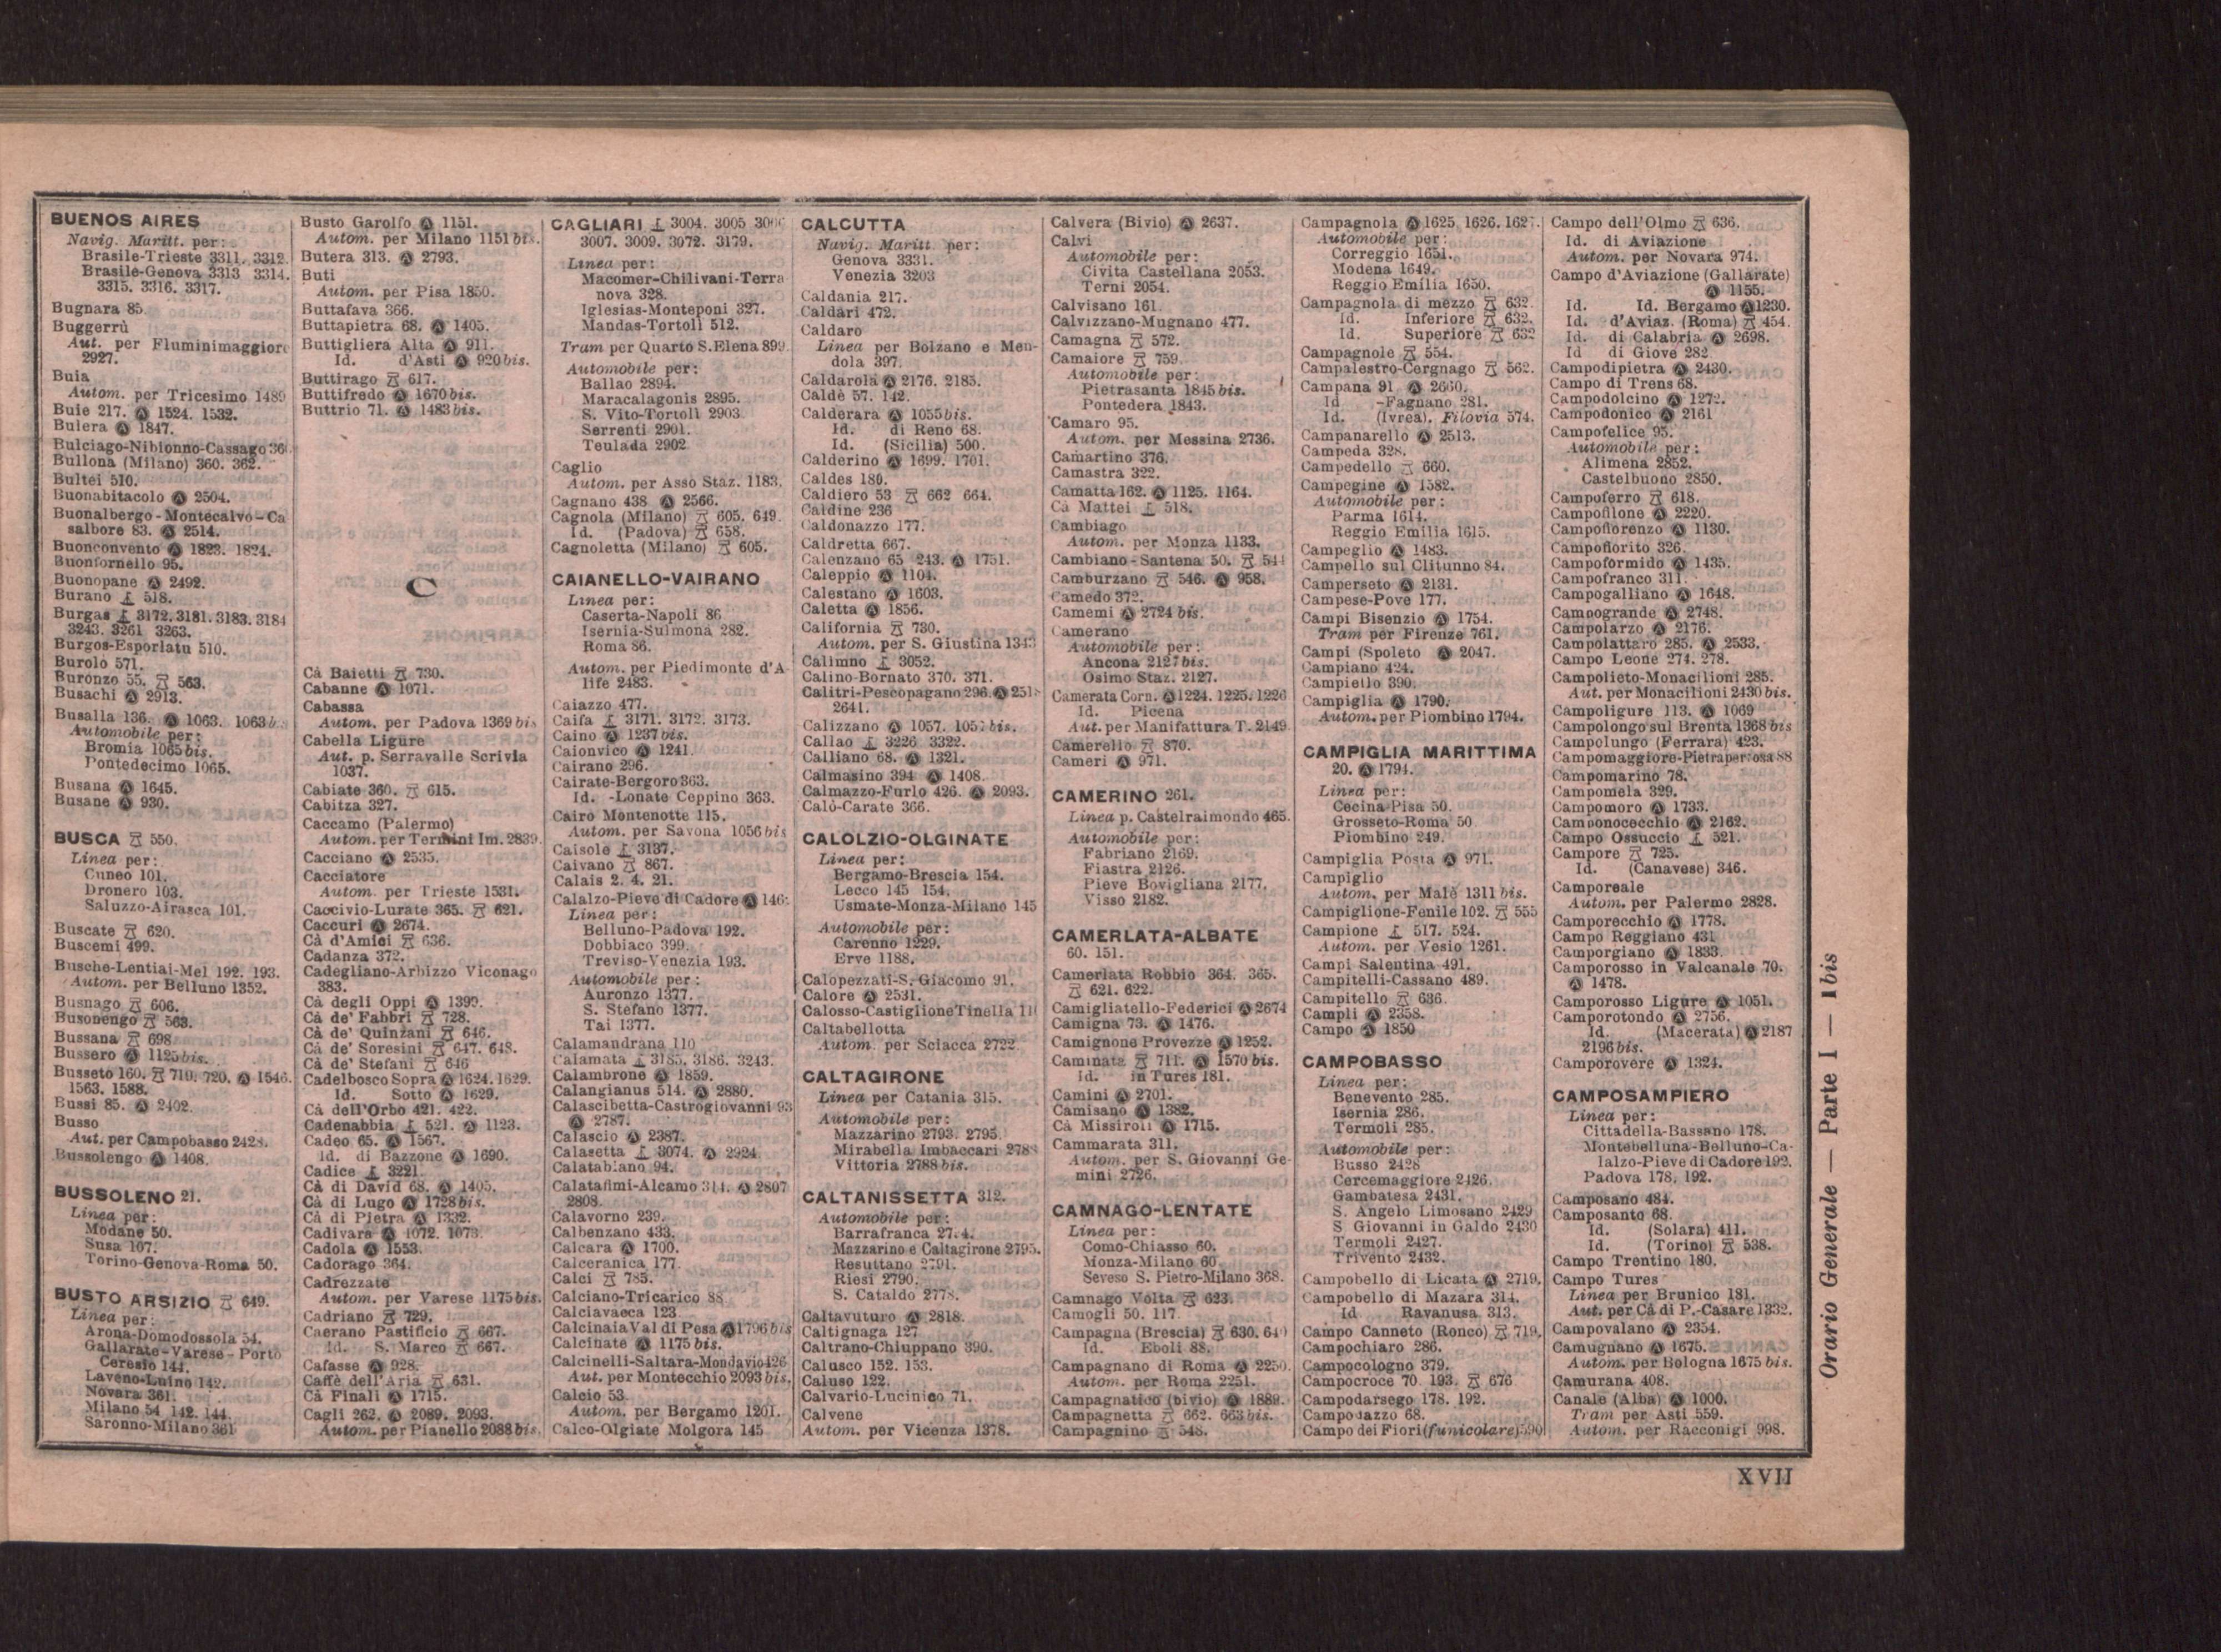 BUENOS AIRES
Navig. Maritt. per:
Brasile-Trieste 3311. 3312.
Brasile-Genova 3313 3314.
3315. 3316. 3317.
Bugnara 85.
Buggerrù
Aut. per Fluminimaggiore
2927.
Buia
Autom. per Tricesimo 1489
Buie 217. Ⓐ 1524. 1532.
Bulera Ⓐ 1847.
Bulciago-Nibionno-Cassago 36
Bullona (Milano) 360. 362.
Bultei 510.
Buonabitacolo Ⓐ 2504.
Buonalbergo-Montecalvo-Ca
salbore 83. Ⓐ 2514.
Buonconvento Ⓐ 1823. 1824.
Buonfornello 95.
Buonopane Ⓐ 2492.
Burano 518.
Burgas 3172. 3181. 3183. 3184
3243. 3261 3263.
Burgos-Esporlatu 510.
Burolo 571.
Buronzo 55. 563.
Busachi Ⓐ 2913.
Busalla 136. Ⓐ 1063. 1063
Automobile per:
Bromia 1065 bis.
Pontedecimo 1065.
Busana Ⓐ 1645.
Busane Ⓐ 930.
BUSCA 550.
Linea per:
Cuneo 101.
Dronero 103.
Saluzzo-Airasca 101.
Buscate 620.
Buscemi 499.
Busche-Lentiai-Mel 192. 193.
Autom. per Belluno 1352.
Busnago 606.
Busonengo 563.
Bussana 698
Bussero Ⓐ 1125 bis.
Busseto 160. 710. 720. Ⓐ 1546.
1563. 1588.
Bussi 85. Ⓐ 2402.
Busso
Aut. per Campobasso 2428.
Bussolengo Ⓐ 1408.
BUSSOLENO 21.
Linea per:
Modane 50.
Susa 107.
Torino-Genova-Roma 50.
BUSTO ARSIZIO 649.
Linea per:
Arona-Domodossola 54.
Gallarate-Varese-Porto
Ceresio 144.
Laveno-Luino 142.
Novara 361.
Milano 54 142. 144.
Saronno-Milano 361
Busto Garolfo Ⓐ 1151.
Autom. per Milano 1151 bis.
Butera 313. Ⓐ 2793.
Buti
Autom. per Pisa 1850.
Buttafava 366.
Buttapietra 68. Ⓐ 1405.
Buttigliera Alta Ⓐ 911.
Id. d'Asti Ⓐ 920 bis.
Buttirago 617.
Buttifredo Ⓐ 1670 bis.
Buttrio 71. Ⓐ 1483 bis.
C
Cà Baietti 730.
Cabanne Ⓐ 1071.
Cabassa
Autom. per Padova 1369 bis
Cabella Ligure
Aut. p. Serravalle Scrivia
1037.
Cabiate 360. 615.
Cabitza 327.
Caccamo (Palermo)
Autom. per Termini Im. 2839
Cacciano Ⓐ 2535.
Cacciatore
Autom. per Trieste 1531.
Caccivio-Lurate 365. 621.
Caccuri Ⓐ 2674.
Cà d'Amici 636.
Cadanza 372.
Cadegliano-Arbizzo Viconago
383.
Cà degli Oppi Ⓐ 1399.
Cà de' Fabbri 728.
Cà de' Quinzani 646.
Cà de' Soresini 647. 648.
Cà de' Stefani 646
Cadelbosco Sopra Ⓐ 1624. 1629.
Id. Sotto Ⓐ 1629.
Cà dell'Orbo 421. 422.
Cadenabbia 521. Ⓐ 1123.
Cadeo 65. Ⓐ 1567.
Id. di Bazzone Ⓐ 1690.
Cadice 3221.
Cà di David 68. Ⓐ 1405.
Cà di Lugo Ⓐ 1728 bis.
Cà di Pietra Ⓐ 1332.
Cadivara Ⓐ 1072. 1073.
Cadola Ⓐ 1553.
Cadorago 364.
Cadrezzate
Autom. per Varese 1175 bis.
Cadriano 729.
Caerano Pastificio 667.
Id. S. Marco 667.
Cafasse Ⓐ 928.
Caffè dell'Aria 631.
Cà Finali Ⓐ 1715.
Cagli 262. Ⓐ 2089. 2093.
Autom. per Pianello 2088 bis.
CAGLIARI 3004. 3005
3007. 3009. 3072. 3179.
Linea per:
Macomer-Chilivani-Terra
nova 328.
Iglesias-Monteponi 327.
Mandas-Tortolì 512.
Tram per Quarto S. Elena 899
Automobile per:
Ballao 2894.
Maracalagonis 2895.
S. Vito-Tortolì 2903
Serrenti 2901.
Teulada 2902
Caglio
Autom. per Asso Staz. 1183.
Cagnano 438 Ⓐ 2566.
Cagnola (Milano) 605. 649.
Id. (Padova) 658.
Cagnoletta (Milano) 605.
CAIANELLO-VAIRANO
Linea per:
Caserta-Napoli 86
Isernia-Sulmona 282.
Roma 86.
Autom. per Piedimonte d'A
life 2483.
Caiazzo 477.
Caifa 3171. 3172. 3173.
Caino Ⓐ 1237 bis.
Caionvico Ⓐ 1241.
Cairano 296.
Cairate-Bergoro 363.
Id. -Lonate Ceppino 363.
Cairo Montenotte 115.
Autom. per Savona 1056 bis
Caisole 3137.
Caivano 867.
Calais 2. 4. 21.
Calalzo-Pieve di Cadore Ⓐ 146
Linea per:
Belluno-Padova 192.
Dobbiaco 399.
Treviso-Venezia 193.
Automobile per:
Auronzo 1377.
S. Stefano 1377.
Tai 1377.
Calamandrana 110
Calamata 3185. 3186. 3243.
Calambrone Ⓐ 1859.
Calangianus 514. Ⓐ 2880.
Calascibetta-Castrogiovanni 93
Ⓐ 2787.
Calascio Ⓐ 2387.
Calasetta 3074. Ⓐ 2924
Calatabiano 94.
Calatafimi-Alcamo 314. Ⓐ 2807
2808.
Calavorno 239.
Calbenzano 433.
Calcara Ⓐ 1700.
Calceranica 177.
Calci 785.
Calciano-Tricarico 88
Calciavacca 123
Calcinaia Val di Pesa Ⓐ 1796 bis
Calcinate Ⓐ 1175 bis.
Calcinelli-Saltara-Mondavio 426
Aut. per Montecchio 2093 bis.
Calcio 53
Autom. per Bergamo 1201.
Calco-Olgiate Molgora 145
CALCUTTA
Navig. Maritt. per:
Genova 3331.
Venezia 3203
Caldania 217.
Caldari 472.
Caldaro
Linea per Bolzano e Men-
dola 397.
Caldarola Ⓐ 2176. 2185.
Caldè 57. 142.
Calderara Ⓐ 1055 bis.
Id. di Reno 68.
Id. (Sicilia) 500.
Calderino Ⓐ 1699. 1701.
Caldes 180.
Caldiero 53 662 664.
Caldine 236
Caldonazzo 177.
Caldretta 667.
Calenzano 65 243. Ⓐ 1751.
Caleppio Ⓐ 1104.
Calestano Ⓐ 1603.
Caletta Ⓐ 1856.
California 730.
Autom. per S. Giustina 1343
Calimno 3052.
Calino-Bornato 370. 371.
Calitri-Pescopagano 296. Ⓐ 251
2641.
Calizzano Ⓐ 1057. 1057 bis.
Callao 3226 3322.
Calliano 68. Ⓐ 1321.
Calmasino 394 Ⓐ 1408.
Calmazzo-Furlo 426. Ⓐ 2093.
Calò-Carate 366.
CALOLZIO-OLGINATE
Linea per:
Bergamo-Brescia 154.
Lecco 145 154.
Usmate-Monza-Milano 145
Automobile per:
Carenno 1229.
Erve 1188.
Calopezzati-S. Giacomo 91.
Calore Ⓐ 2531.
Calosso-Castiglione Tinella 11
Caltabellotta
Autom. per Sciacca 2722
CALTAGIRONE
Linea per Catania 315.
Automobile per:
Mazzarino 2793. 2795.
Mirabella Imbaccari 278
Vittoria 2788 bis.
CALTANISSETTA 312.
Automobile per:
Barrafranca
Mazzarino e Caltagirone 2795.
Resuttano 2791.
Riesi 2790.
S. Cataldo 2778.
Caltavuturo Ⓐ 2818.
Caltignaga 127
Caltrano-Chiuppano 390.
Calusco 152. 153.
Caluso 122.
Calvario-Lucinico 71.
Calvene
Autom. per Vicenza 1378.
Calvera (Bivio) Ⓐ 2637.
Calvi
Automobile per:
Civita Castellana 2053.
Terni 2054.
Calvisano 161.
Calvizzano-Mugnano 477.
Camagna 572.
Camaiore 759.
Automobile per:
Pietrasanta 1845 bis.
Pontedera 1843.
Camaro 95.
Autom. per Messina 2736.
Camartino 376.
Camastra 322.
Camatta 162. Ⓐ 1125. 1164.
Cà Mattei 518.
Cambiago
Autom. per Monza 1133.
Cambiano-Santena 50. 544
Camburzano 546. Ⓐ 958.
Camedo 372.
Camemi Ⓐ 2724 bis.
Camerano
Automobile per:
Ancona 2127 bis.
Osimo Staz. 2127.
Camerata Corn. Ⓐ 1224. 1225. 1226
Id. Picena
Aut. per Manifattura T. 2149
Camerello 870.
Cameri Ⓐ 971.
CAMERINO 261.
Linea p. Castelraimondo 465.
Automobile per:
Fabriano 2169.
Fiastra 2126.
Pieve Bovigliana 2177.
Visso 2182.
CAMERLATA-ALBATE
60. 151.
Camerlata Robbio 364. 365.
621. 622.
Camigliatello-Federici Ⓐ 2674
Camigna 73. Ⓐ 1476.
Camignone Provezze Ⓐ 1252.
Caminata 711. Ⓐ 1570 bis.
Id. in Tures 181.
Camini Ⓐ 2701.
Camisano Ⓐ 1382.
Cà Missiroli Ⓐ 1715.
Cammarata 311.
Autom. per S. Giovanni Ge-
mini 2726.
CAMNAGO-LENTATE
Linea per:
Como-Chiasso 60.
Monza-Milano 60
Seveso S. Pietro-Milano 368.
Camnago Volta 623.
Camogli 50. 117.
Campagna (Brescia) 630. 64
Id. Eboli 88.
Campagnano di Roma Ⓐ 2250.
Autom. per Roma 2251.
Campagnatico (bivio) Ⓐ 1889.
Campagnetta 662. 663 bis.
Campagnino 548.
Campagnola Ⓐ 1625. 1626. 1627.
Automobile per:
Correggio 1651.
Modena 1649.
Reggio Emilia 1650.
Campagnola di mezzo 632.
Id. Inferiore 632.
Id. Superiore 632
Campagnole 554.
Campalestro-Cergnago 562.
Campana 91 Ⓐ 2660.
Id -Fagnano 281.
Id. (Ivrea). Filovia 574.
Campanarello Ⓐ 2513.
Campeda 328.
Campedello 660.
Campegine Ⓐ 1582.
Automobile per:
Parma 1614.
Reggio Emilia 1615.
Campeglio Ⓐ 1483.
Campello sul Clitunno 84.
Camperseto Ⓐ 2131.
Campese-Pove 177.
Campi Bisenzio Ⓐ 1754.
Tram per Firenze 761.
Campi (Spoleto Ⓐ 2047.
Campiano 424.
Campiello 390.
Campiglia Ⓐ 1790.
Autom. per Piombino 1794.
CAMPIGLIA MARITTIMA
20. Ⓐ 1794.
Linea per:
Cecina-Pisa 50.
Grosseto-Roma 50
Piombino 249.
Campiglia Posta Ⓐ 971.
Campiglio
Autom. per Malè 1311 bis.
Campiglione-Fenile 102. 555
Campione 517. 524.
Autom. per Vesio 1261.
Campi Salentina 491.
Campitelli-Cassano 489.
Campitello 636.
Campli Ⓐ 2358.
Campo Ⓐ 1850
CAMPOBASSO
Linea per:
Benevento 285.
Isernia 286.
Termoli 285.
Automobile per:
Busso 2428
Cercemaggiore 2426.
Gambatesa 2431.
S. Angelo Limosano 2429
S Giovanni in Galdo 2430
Termoli 2427.
Trivento 2432.
Campobello di Licata Ⓐ 2719.
Campobello di Mazara 314.
Id Ravanusa 313.
Campo Canneto (Ronco) 719.
Campochiaro 286.
Campocologno 379.
Campocroce 70 193. 676
Campodarsego 178. 192.
Campodazzo 68.
Campo dei Fiori (funicolare) 590
Campo dell'Olmo 636.
Id. di Aviazione
Autom. per Novara 974.
Campo d'Aviazione (Gallarate)
Ⓐ 1155.
Id. Id. Bergamo Ⓐ 1230.
Id. d'Aviaz. (Roma) 454.
Id. di Calabria Ⓐ 2698.
Id di Giove 282
Campodipietra Ⓐ 2430.
Campo di Trens 68.
Campodolcino Ⓐ 1272.
Campodonico Ⓐ 2161
Campofelice 95.
Automobile per:
Alimena 2852.
Castelbuono 2850.
Campoferro 618.
Campofilone Ⓐ 2220.
Campofiorenzo Ⓐ 1130.
Campofiorito 326.
Campoformido Ⓐ 1435.
Campofranco 311.
Campogalliano Ⓐ 1648.
Campogrande Ⓐ 2748.
Campolarzo Ⓐ 2176.
Campolattaro 285. Ⓐ 2533.
Campo Leone 274. 278.
Campolieto-Monacilioni 285.
Aut. per Monacilioni 2430 bis.
Campoligure 113. Ⓐ 1069
Campolongo sul Brenta 1368 bis
Campolungo (Ferrara) 423.
Campomaggiore-Pietrapertosa 88
Campomarino 78.
Campomela 329.
Campomoro Ⓐ 1733.
Camponocecchio Ⓐ 2162.
Campo Ossuccio 521.
Campore 725.
Id. (Canavese) 346.
Camporeale
Autom. per Palermo 2828.
Camporecchio Ⓐ 1778.
Campo Reggiano 431
Camporgiano Ⓐ 1833.
Camporosso in Valcanale 70.
Ⓐ 1478.
Camporosso Ligure Ⓐ 1051.
Camporotondo Ⓐ 2756.
Id. (Macerata) Ⓐ 2187
2196 bis.
Camporovere Ⓐ 1324.
CAMPOSAMPIERO
Linea per:
Cittadella-Bassano 178.
Montebelluna-Belluno-Ca-
lalzo-Pieve di Cadore 192.
Padova 178. 192.
Camposano 484.
Camposanto 68.
Id. (Solara) 411.
Id. (Torino) 538.
Campo Trentino 180.
Campo Tures
Linea per Brunico 181.
Aut. per Cà di P.-Casare 1332.
Campovalano Ⓐ 2354.
Camugnano Ⓐ 1675.
Autom. per Bologna 1675 bis.
Camurana 408.
Canale (Alba) Ⓐ 1000.
Tram per Asti 559.
Autom. per Racconigi 998.
Orario Generale — Parte I — 1 bis
XVII